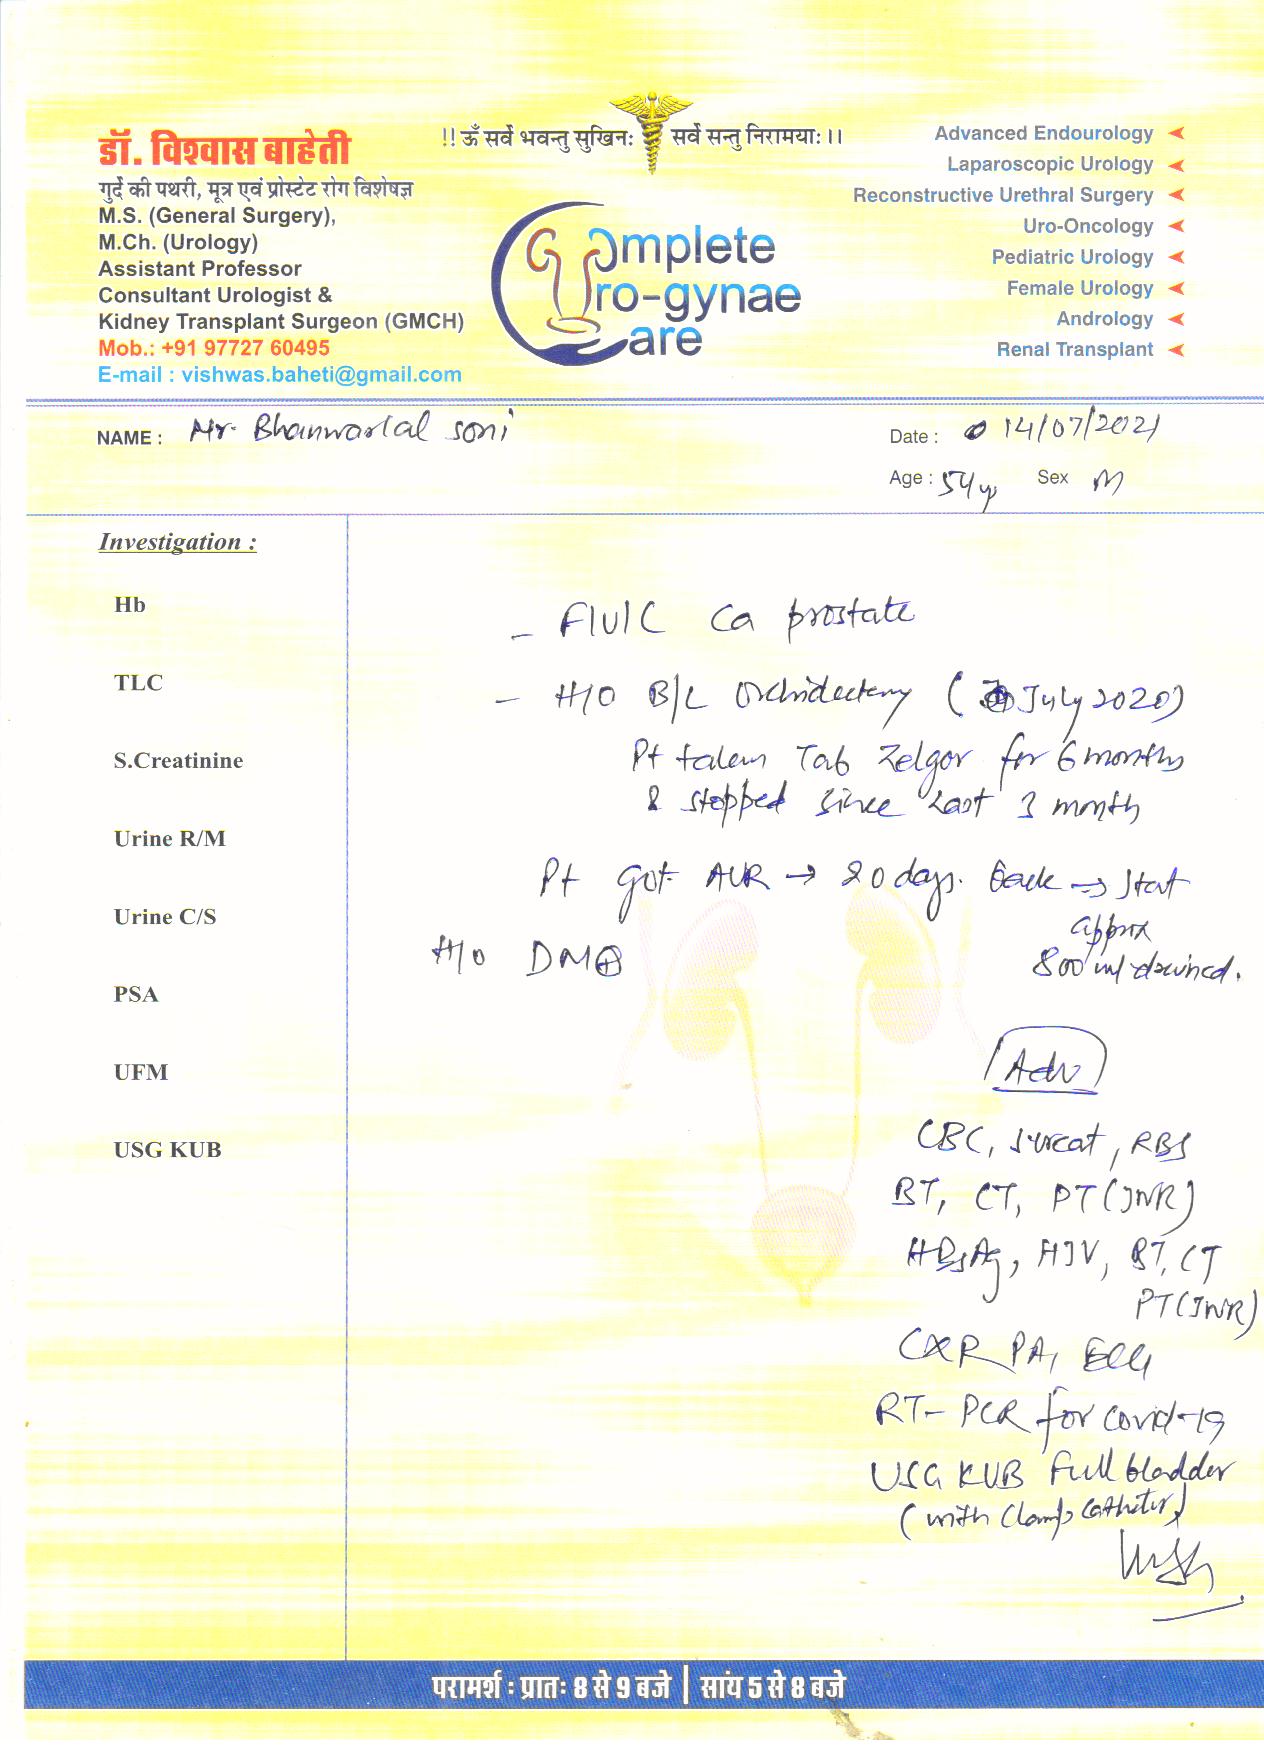 !! ॐ सर्वे भवन्तु सुखिनः सर्वे सन्तु निरामयाः ।।
डॉ. विश्वास बाहेती
गुर्दे की पथरी, मूत्र एवं प्रोस्टेट रोग विशेषज्ञ
M.S. (General Surgery),
M.Ch. (Urology)
Assistant Professor
Consultant Urologist &
Kidney Transplant Surgeon (GMCH)
Mob.: +91 97727 60495
E-mail : vishwas.baheti@gmail.com
Complete
Uro-gynae
Care
Advanced Endourology
Laparoscopic Urology
Reconstructive Urethral Surgery
Uro-Oncology
Pediatric Urology
Female Urology
Andrology
Renal Transplant
NAME : Mr. Bhanwarlal Soni
Date : 14/07/2021
Age : 54 y Sex M
Investigation :
Hb
TLC
S.Creatinine
Urine R/M
Urine C/S
PSA
UFM
USG KUB
- F/U/C Ca prostate
- H/O B/L Orchidectomy ( July 2020)
Pt taken Tab Zelgor for 6 months
& stopped since last 3 month
Pt got AUR → 20 days back →
approx
800 ml drained.
H/o DM⊕
Adv
CBC, RBS
BT, CT, PT (INR)
HBsAg, HIV, BT, CT
PT (INR)
CXR PA, ECG
RT-PCR for Covid-19
USG KUB Full bladder
(with Clamp Catheter)
परामर्श : प्रातः 8 से 9 बजे | सांय 5 से 8 बजे